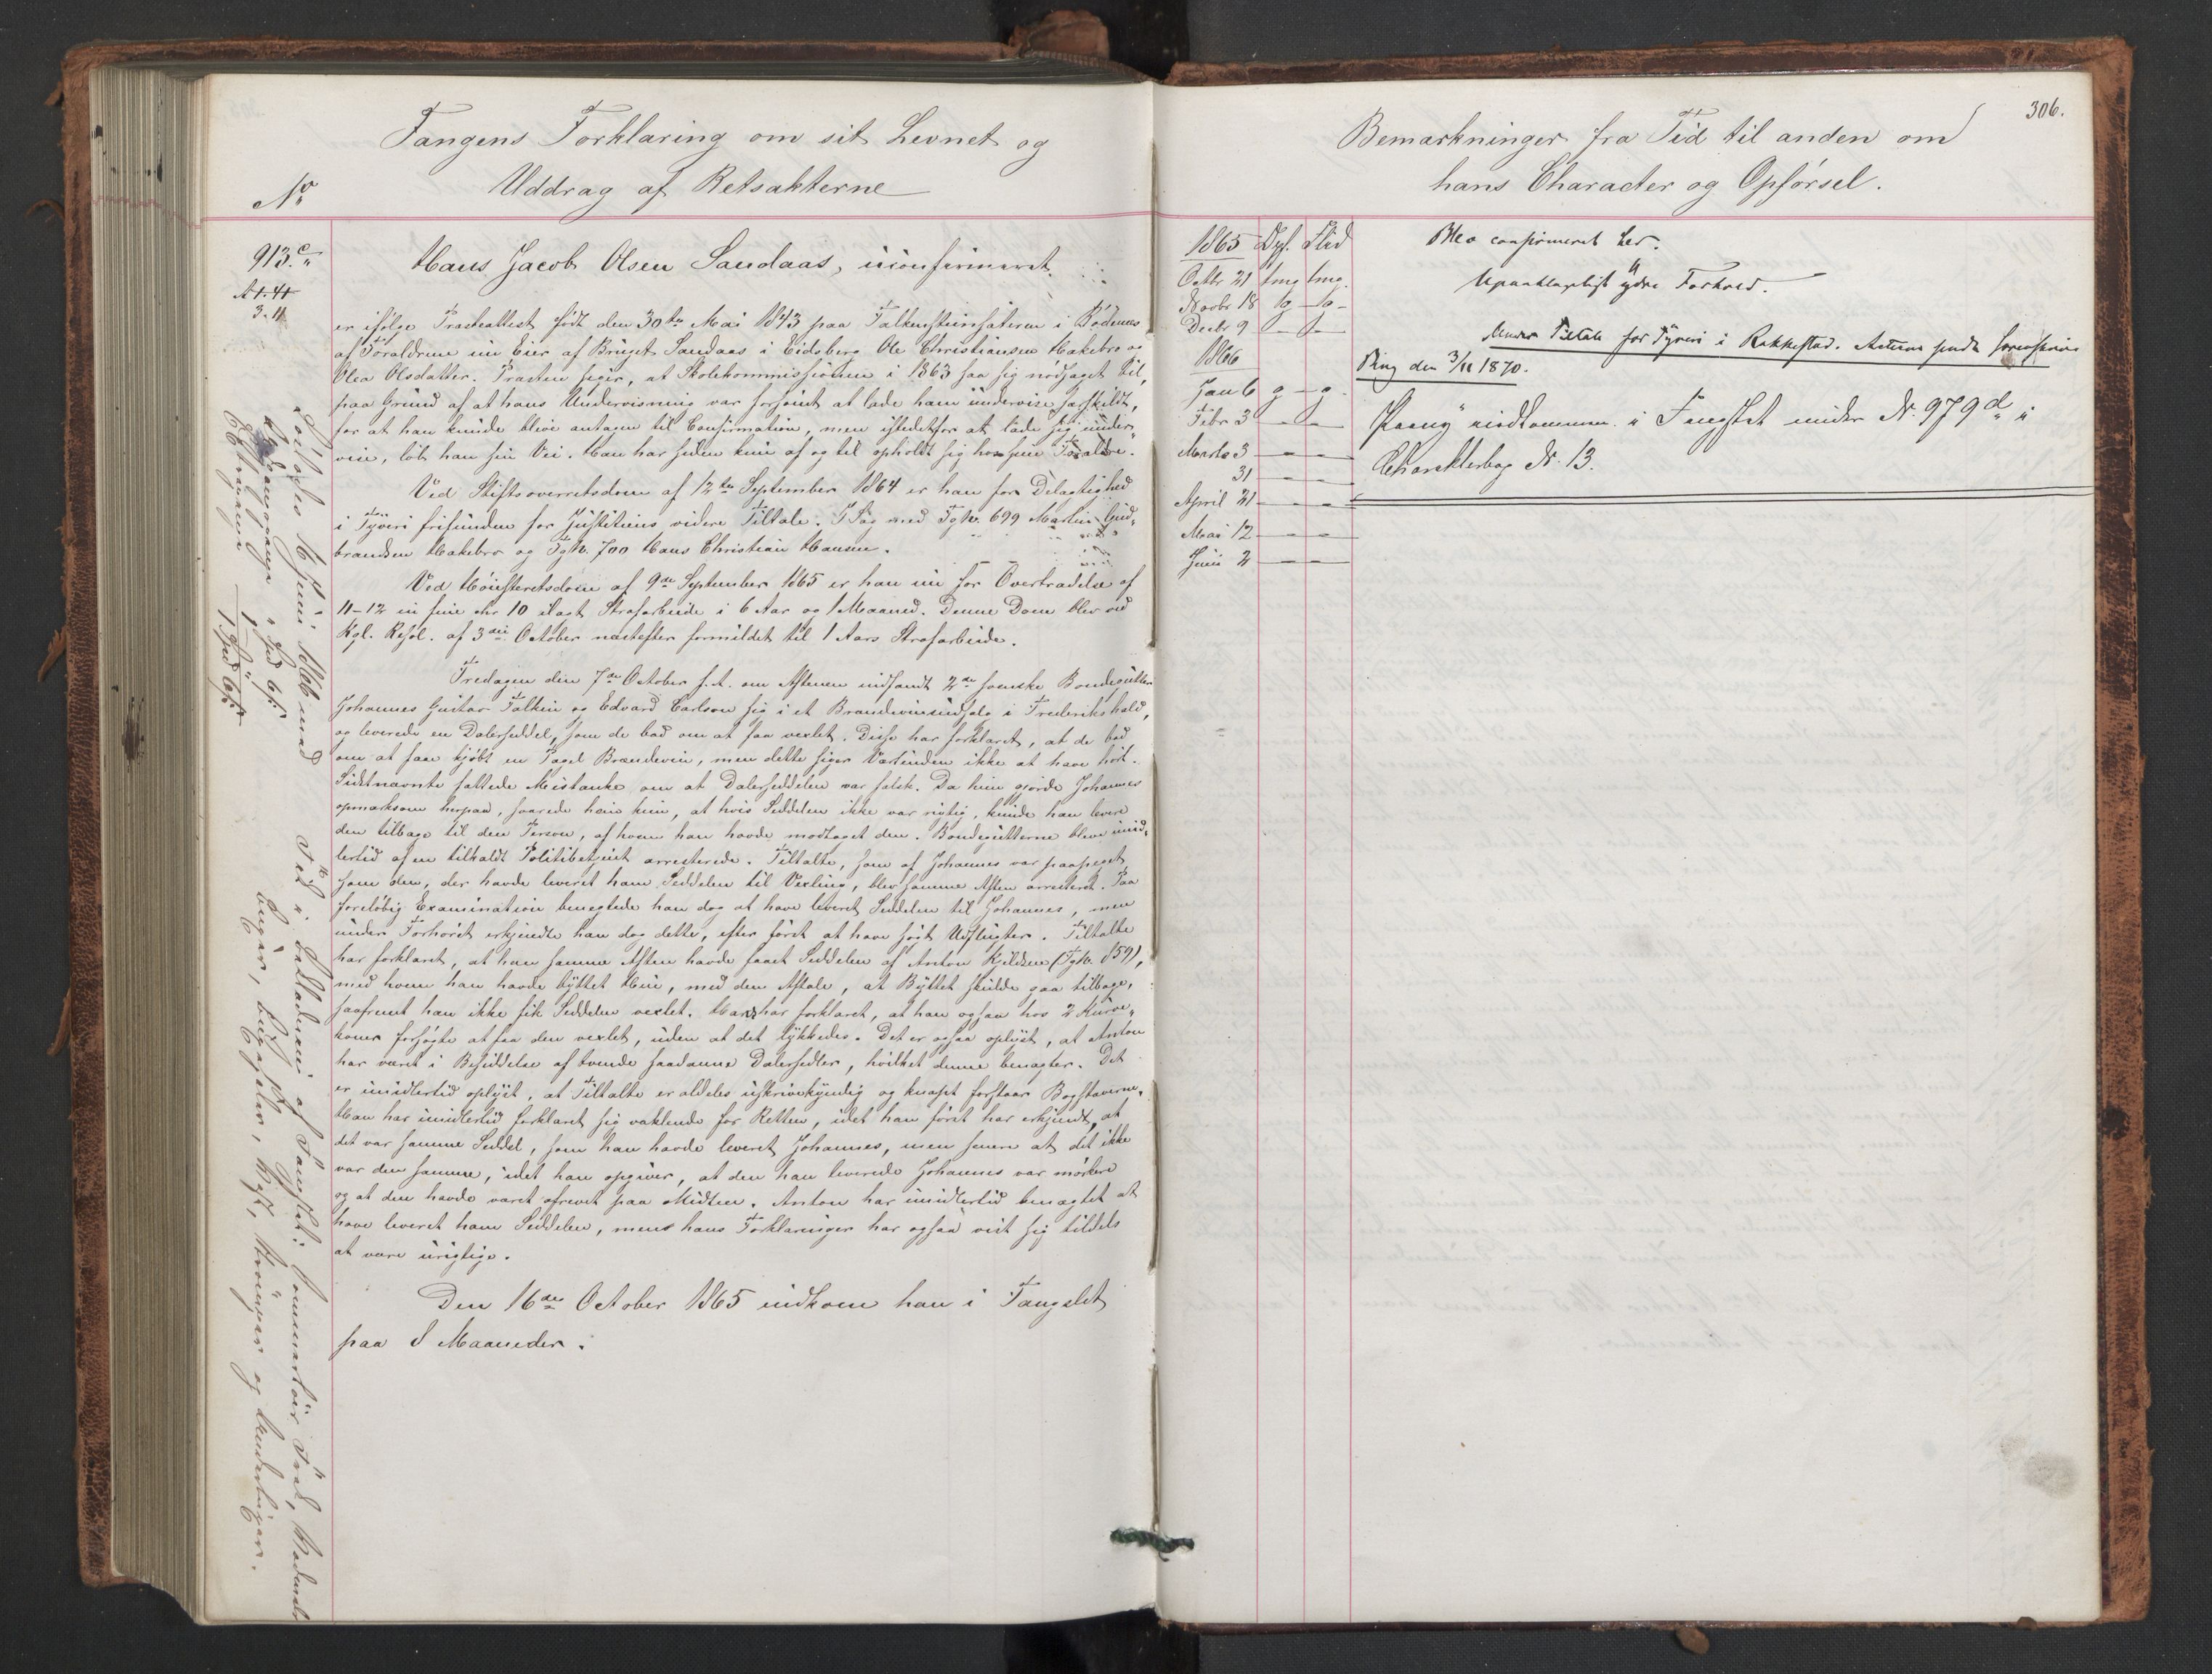 Fangens Forklaring om sit Levnet og
Uddrag af Retsakterne
No
913.c
A 1. 41
3. 11
Hans Jacob Olsen Sandaas, uconfirmeret,
er ifølge Præsteattest født den 30te Mai 1843 paa Falkensteinsæteren i Rødenes
af Forældrene nu Eier af Bruget Sandaas i Eidsberg Ole Christiansen Hakebro og
Olea Olsdatter. Præsten siger, at Skolekommissionen i 1863 saa sig nødsaget til,
paa Grund af at hans Undervisning var forsømt at lade ham undervise særskildt,
for at han kunde blive antagen til Confirmation, men istedetfor at lade sig under-
vise, løb han sin Vei. Han har siden kun af og til opholdt sig hos sine Forældre.
Ved Stiftsoverretsdom af 12te September 1864 er han for Delagtighed
i Tyveri frifunden for Justitiens videre Tiltale. I Sag med Fg No. 699 Martin Gud-
brandsen Hakebro og Fg No. 700 Hans Christian Hansen.
Ved Høiesteretsdom af 9de September 1865 er han nu for Overtrædelse af
11-12 in fine cfr 10 ilagt Strafarbeide i 6 Aar og 1 Maaned. Denne Dom blev ved
Kgl. Resol. af 3die October næstefter formildet til 1 Aars Strafarbeide.
Fredagen den 7de October f. A. om Aftenen indfandt 2de svenske Bondegutter
Johannes Gustav Falkin og Edvard Carlson sig i et Brændevinsudsalg i Frederikshald,
og leverede en Dalerseddel, som de bad om at faa vexlet. Disse har forklaret, at de bad
om at faae kjøbt en Pægel Brændevin, men dette siger Værtinden ikke at have hørt.
Sidstnævnte fattede Mistanke om at Dalerseddelen var falsk. Da hun gjorde Johannes
opmærksom herpaa, svarede han kun, at hvis Seddelen ikke var rigtig, kunde han levere
den tilbage til den Person, af hvem han havde modtaget den. Bondegutterne bleve imid-
lertid af en tilkaldt Politibetjent arresterede. Tiltalte, som af Johannes var paapeget
som den, der havde leveret ham Seddelen til Vexling, blev samme Aften arresteret. Paa
foreløbig Examination benegtede han dog at have leveret Seddelen til Johannes, men
under Forhøret erkjendte han dog dette, efter først at have søgt Udflugter. Tiltalte
har forklaret, at han samme Aften havde faaet Seddelen af Anton Kjeldsen (Fg No. 859),
med hvem han havde byttet Huer, med den Aftale, at Byttet skulde gaa tilbage,
saafremt han ikke fik Seddelen vexlet. Han har forklaret, at han ogsaa hos 2 Kurve-
koner forsøgte at faa den vexlet, uden at det lykkedes. Det er ogsaa oplyst, at Anton
har været i Besiddelse af tvende saadanne Dalersedler, hvilket denne benægter. Det
er imidlertid oplyst, at Tiltalte er aldeles uskrivekyndig og knapt forstaar Bogstaverne.
Han har imidlertid forklaret sig vaklende for Retten, idet han først har erkjendt, at
det var samme Seddel, som han havde leveret Johannes, men senere at det ikke
var den samme, idet han opgiver, at den han leverede Johannes var mørkere
og at den havde været afrevet paa Midten. Anton har imidlertid benægtet at
have leveret ham Seddelen, mens hans Forklaringer har ogsaa vist sig tildels
at være urigtige.
Den 16de October 1865 indkom han i Fængslet
paa 8 Maaneder.
306.
Bemærkninger fra Tid til anden om
hans Character og Opførsel.
1865 Opf. Flid
Octbr 21 tmg tmg.
Novbr 18 g g
Decbr 9 - -
1866
Jan 6 g - g
Febr 3 - -
Marts 3 - -
31 - -
April 21 - -
Mai 12 - -
Juni 2 - -
Blev confirmeret her.
Upaaklageligt ydre Forhold.
Under Tiltale for Tyveri i Rakkestad. Acterne sendt Sorenskriver
Ring den 3/11 1870.
Paany indkommen i Fængslet under No. 979d i
Charakterbog No. 13.